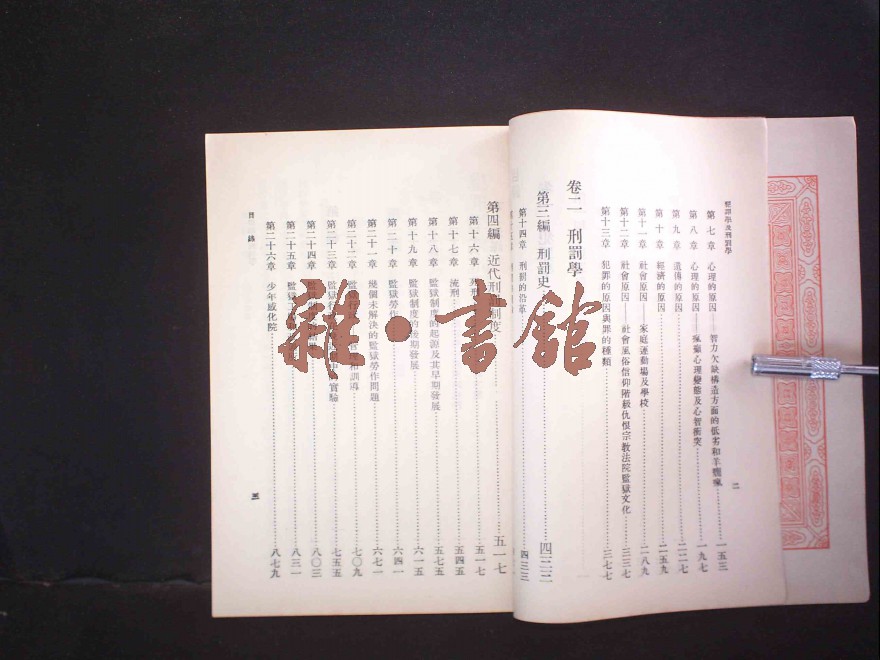 犯罪學及刑罰學
第七章 心理的原因——智力欠缺構造方面的低劣和羊癇瘋 一五三
第八章 心理的原因——瘋癲心理變態及心智衝突 一九七
第九章 遺傳的原因 二二七
第十章 經濟的原因 二五九
第十一章 社會原因——家庭運動場及學校 二八九
第十二章 社會原因——社會風俗信仰階級仇恨宗教法院監獄文化 三三七
第十三章 犯罪的原因與罪的種類 三七七
二
卷二 刑罰學
第三編 刑罰史 四三三
第十四章 刑罰的沿革 四三三
第四編 近代刑罰制度 五一七
第十六章 死刑 五一七
第十七章 流刑 五四五
第十八章 監獄制度的起源及其早期發展 五七五
第十九章 監獄制度的後期發展 六一五
第二十章 監獄勞作 六四一
第二十一章 幾個未解決的監獄勞作問題 六七一
第二十二章 和訓導 七〇九
第二十三章 實驗 七五五
第二十四章 八〇三
第二十五章 監獄 八三一
第二十六章 少年感化院 八七九
目錄
三
雜·書館